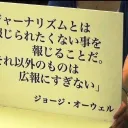 ャーナリズムとは
報じられたくない事を
報じることだ。
それ以外のものは
広報にすぎない」
ジョージ・オーウェル